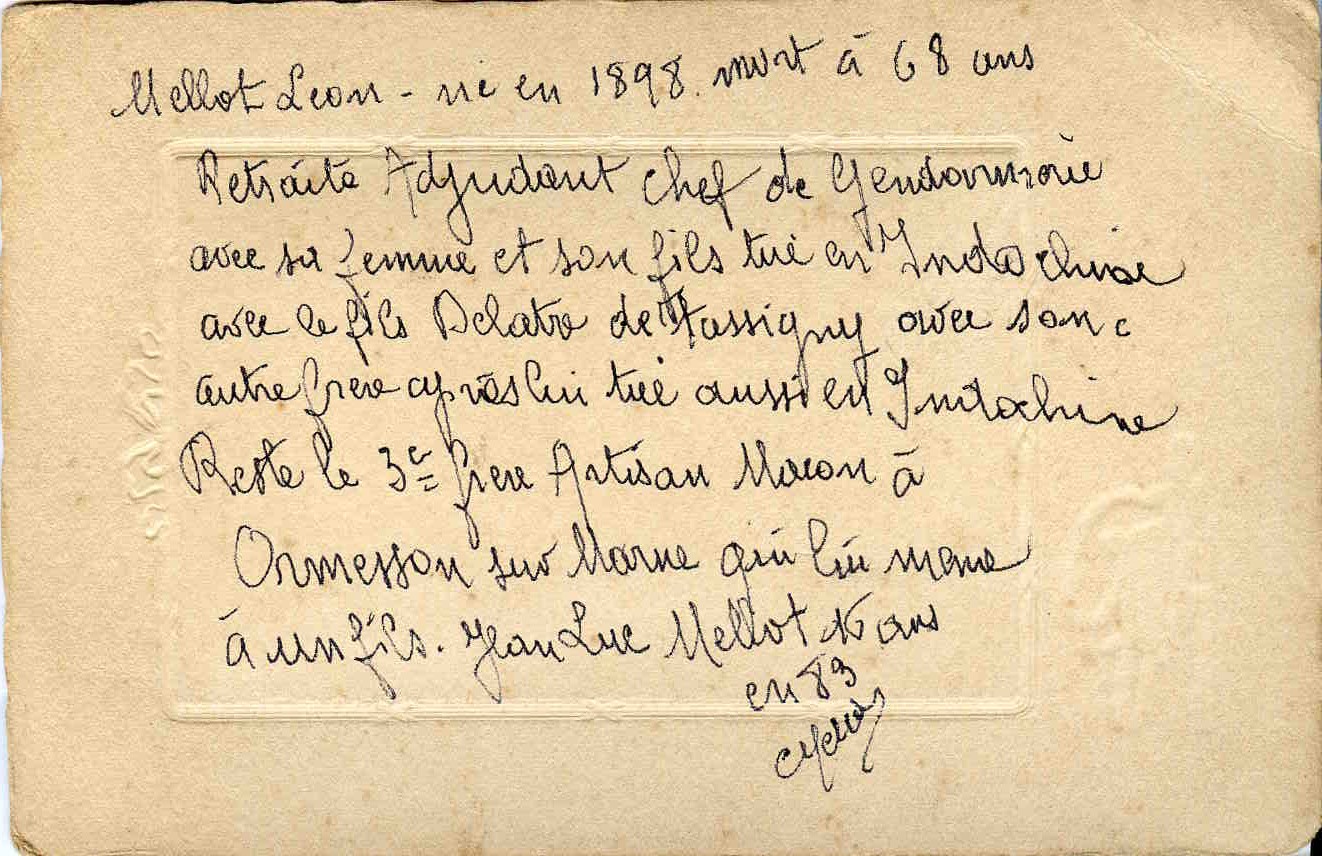 Mellot Leon - né en 1898. mort à 68 ans
Retraité Adjudant chef de Gendarmerie
avec sa femme et son fils tué en Indochine
avec le fils Delatre de Tassigny avec son
autre frere après lui tué aussi en Indochine
Reste le 3e frere Artisan Macon à
Ormesson sur Marne qui lui meme
à un fils. Jean Luc Mellot ans
en 83